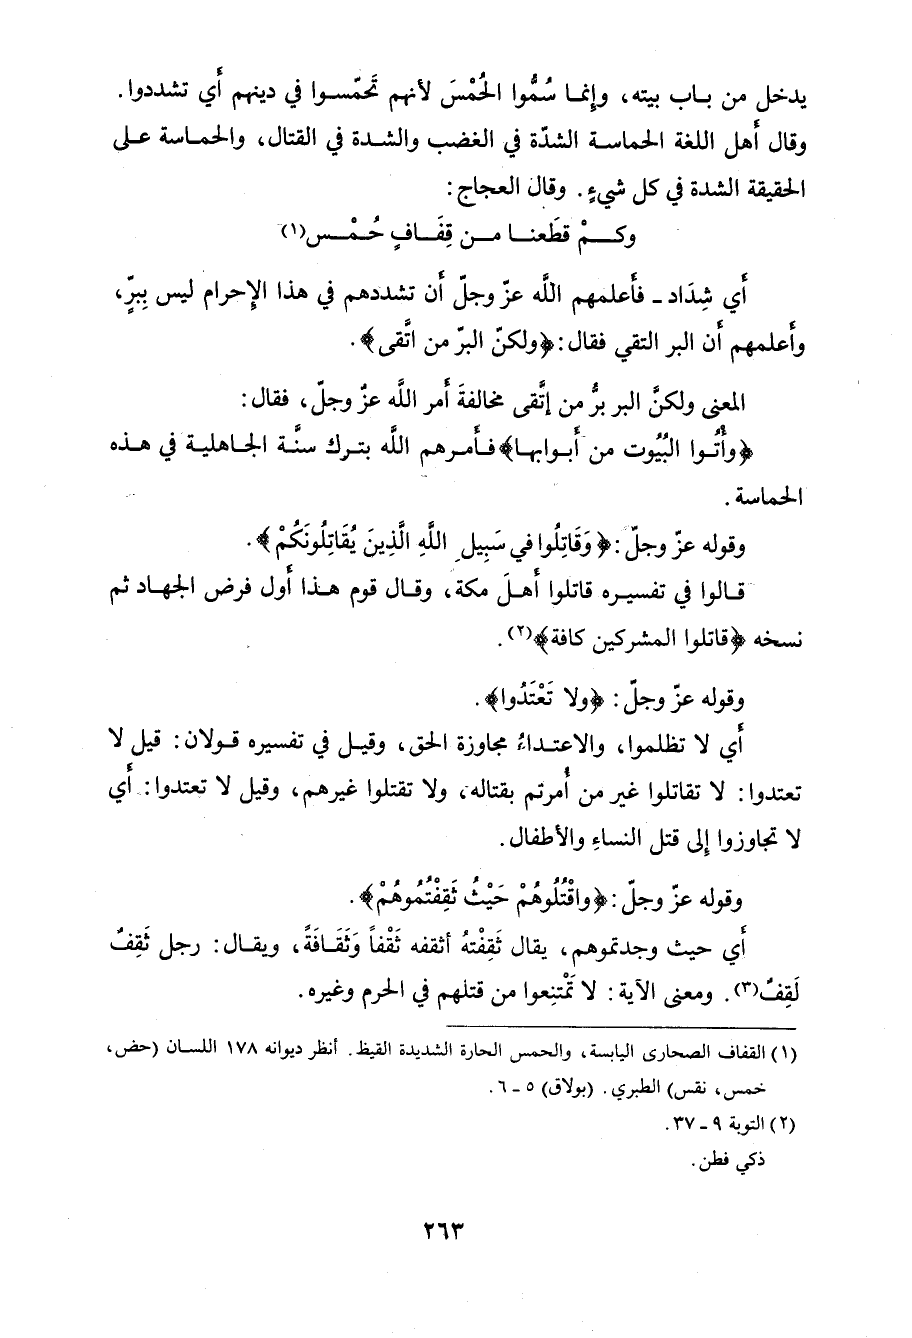 يدخل من باب بيته، وإنما سُمُّوا الحُمْسَ لأنهم تَحَمّسوا في دينهم أَي تشددوا.
وقال أَهل اللغة الحماسة الشدّة في الغضب والشدة في القتال، والحماسة على
الحقيقة الشدة في كل شيءٍ. وقال العجاج:
وكمْ قطَعنا من قِفَافٍ حُمْس(١)
أَي شِدَاد - فأَعلمهم اللَّه عزّ وجلّ أَن تشددهم في هذا الإِحرام ليس بِبرٍّ،
وأَعلمهم أَن البر التقي فقال: ﴿ولكنّ البرّ من اتَّقى﴾.
المعنى ولكنَّ البر برُّ من إتَّقى مخالفةَ أَمر اللَّه عزّ وجلّ، فقال:
﴿وأْتُوا البُيُوت من أَبوابها﴾ فأَمرهم اللَّه بترك سنَّة الجاهلية في هذه
الحماسة.
وقوله عزّ وجلّ: ﴿وَقَاتِلُوا في سَبِيلِ اللَّهِ الَّذِينَ يُقَاتِلُونَكُمْ﴾.
قالوا في تفسيره قاتلوا أَهلَ مكة، وقال قوم هذا أَول فرض الجهاد ثم
نسخه ﴿قاتلوا المشركين كافة﴾(٢).
وقوله عزّ وجلّ: ﴿ولا تَعْتَدُوا﴾.
أَي لا تظلموا، والاعتداءُ مجاوزة الحق، وقيل في تفسيره قولان: قيل لا
تعتدوا: لا تقاتلوا غير من أُمرتم بقتاله، ولا تقتلوا غيرهم، وقيل لا تعتدوا: أَي
لا تجاوزوا إِلى قتل النساءِ والأَطفال.
وقوله عزّ وجلّ: ﴿واقْتُلُوهُمْ حَيْثُ ثَقِفْتُمُوهُمْ﴾.
أَي حيث وجدتموهم، يقال ثَقِفْتهُ أثقفه ثَقْفاً وَثَقَافَةً، ويقال: رجل ثَقِفٌ
لَقِفٌ(٣). ومعنى الآية: لا تمْتَنِعوا من قتلهم في الحرم وغيره.
(١) القفاف الصحارى اليابسة، والحمس الحارة الشديدة القيظ. أنظر ديوانه ١٧٨ اللسان (حض،
خمس، نقس) الطبري. (بولاق) ٥ - ٦.
(٢) التوبة ٩ - ٣٧.
ذكي فطن.
٢٦٣